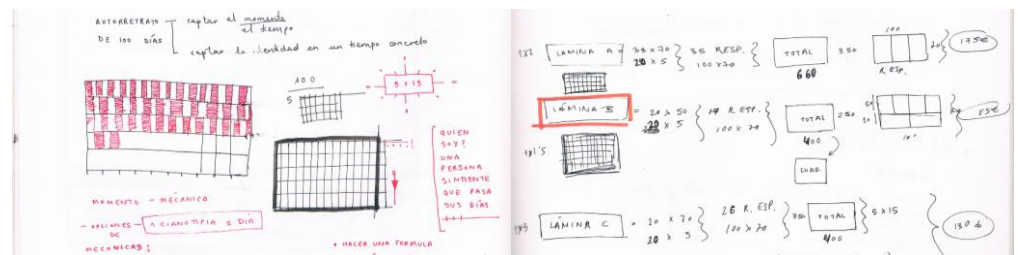 AUTORRETRATO
DE 100 DÍAS
captar el momento
el tiempo
captar la identidad en un tiempo concreto
100
5
5 x 15
=
QUIEN
SOY?
UNA
PERSONA
SINTIENTE
QUE PASA
SUS DÍAS
MOMENTO - MECÁNICA
- OPCIONES - 1 CIANOTIPIA 1 DÍA
DE
MECÁNICAS:
* HACER UNA FORMULA
LÁMINA A
35 x 70
20 x 5
35 RESP.
100 x 70
TOTAL
350
660
100
70
R. ESP.
175€
LÁMINA B
= 20 x 50
20 x 5
R. ESP.
100 x 70
TOTAL
250
400
CUAD.
85€
LÁMINA C
= 20 x 70
20 x 5
26 R. ESP.
100 x 70
TOTAL
400
5 x 15
130